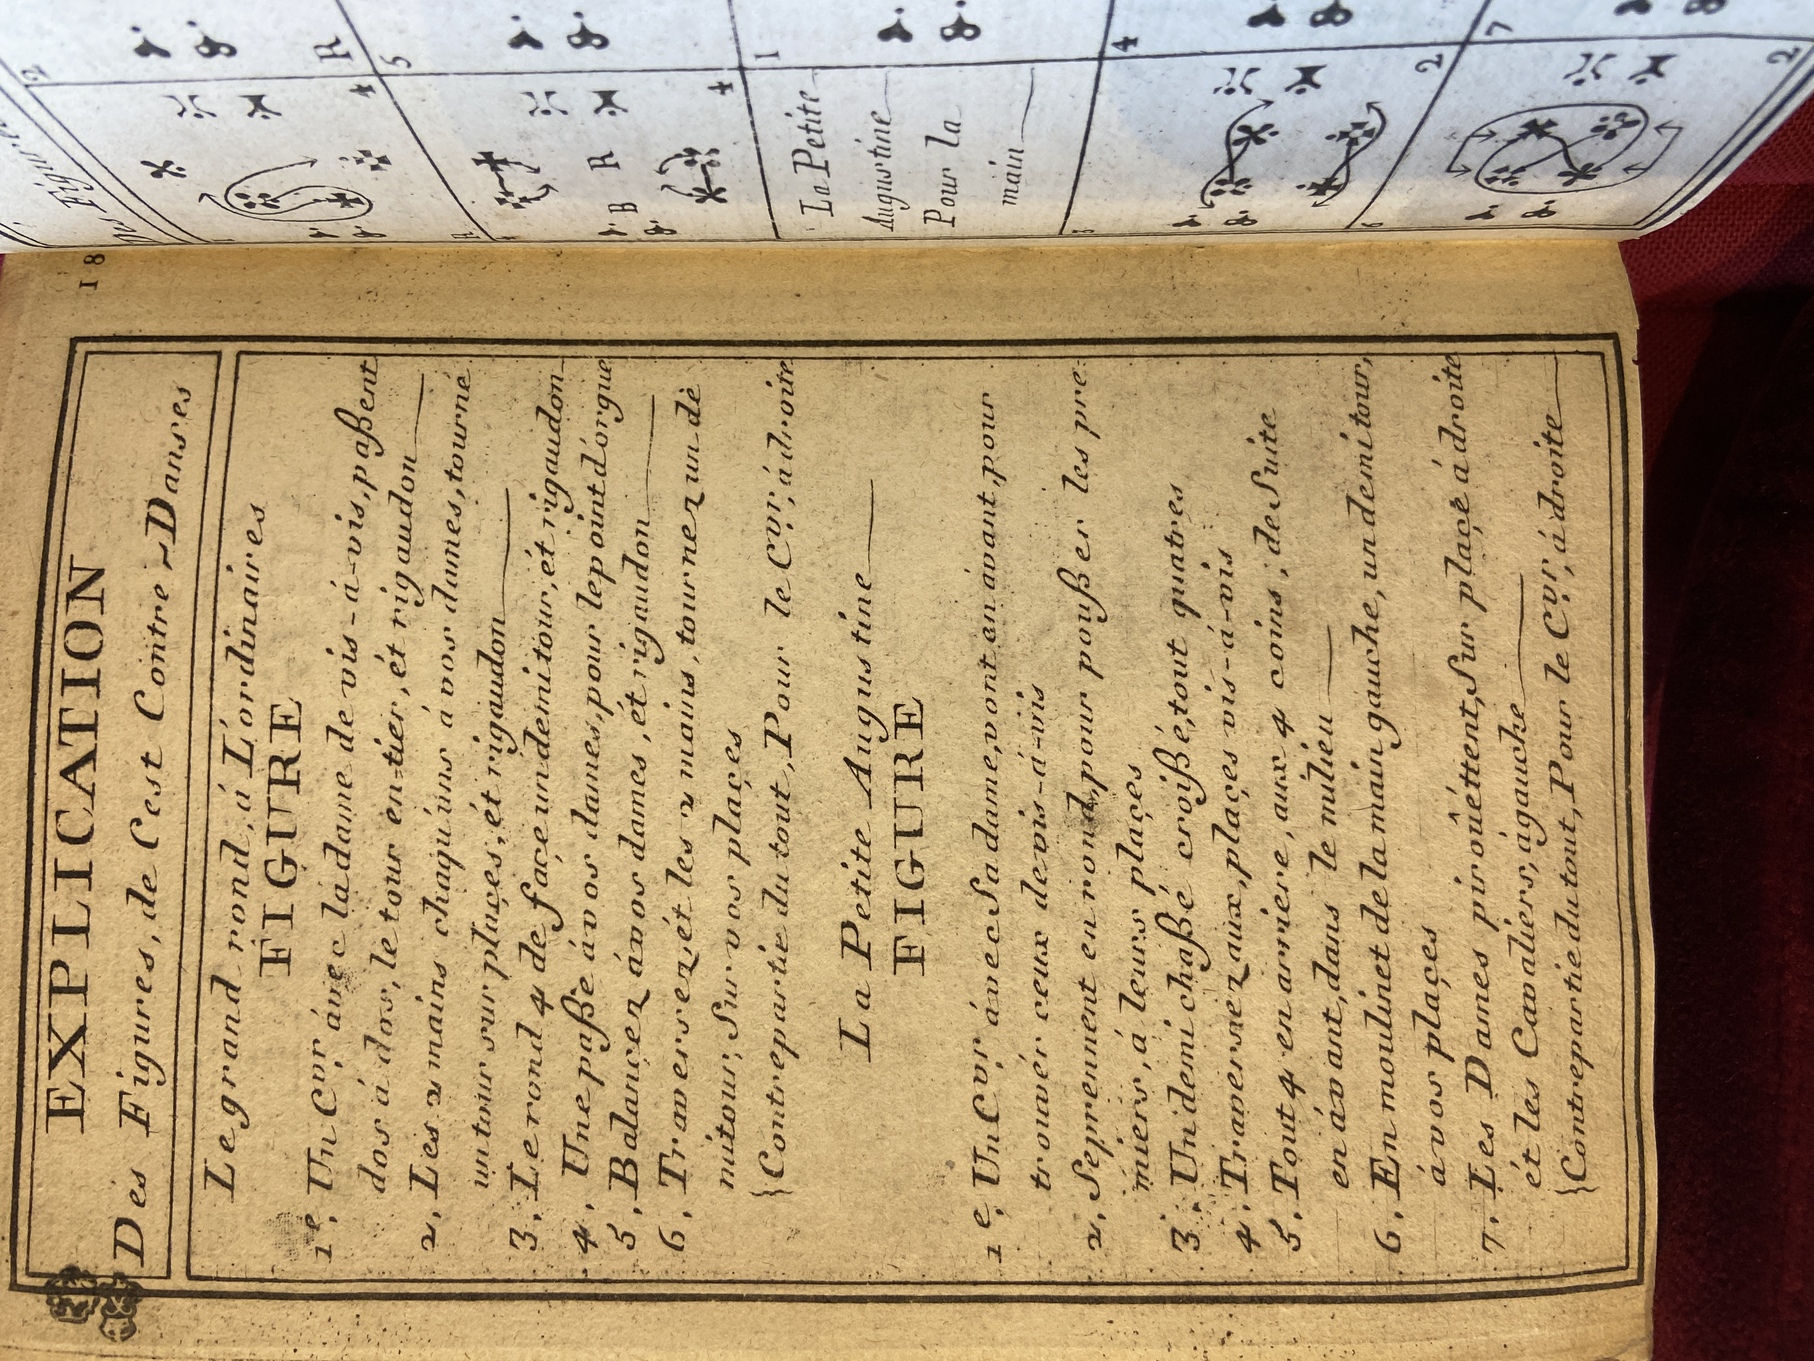 18
EXPLICATION
Dés Figures, de Cest Contre ~ Danses
Le grand rond, á L'ordinaires
FIGURE
1.e Un Cvr, ávec la dame de vis-á-vis, paßent
dos á dos, le tour en-tier, ét rigaudon
2. Les 2 mains chaqu'uns á vos dames, tourné
un tour sur plaçes, ét rigaudon
3. Le rond 4 de façe un demi tour, ét rigaudon
4. Une paße á vos dames, pour le point d'orgue
5. Balançez ávos dames, ét rigaudon
6. Traversez ét les 2 mains, tournez un dè
mi tour, Sur vos plaçes
{Contrepartie du tout, Pour le Cvr; á droite
La Petite Augustine
FIGURE
1.e Un Cvr ávec Sa dame, vont en ávant, pour
trouvér ceux de vis-á-vis
2. Seprennent en rond, pour poußer les pre
miers, á leurs plaçes
3. Un demi chaßé croißé, tout quatres
4. Traversez aux, plaçes vis-á-vis
5. Tout 4 en arriere, aux 4 coins, de Suite
en ávant, dans le milieu
6. En moulinet de la main gauche, un demi tour,
á vos plaçes
7. Les Dames pirouêttent, Sur plaçe á droite
ét les Cavaliers, á gauche
{Contrepartie du tout, Pour le Cvr, á droite
Des Figures
2
R
4
1
5
R
B
R
4
1
La Petite
Augustine
Pour la
main
4
2
7
6
2